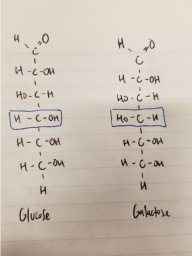 H O H O
C C
H - C - OH H - C - OH
HO - C - H HO - C - H
H - C - OH HO - C - H
H - C - OH H - C - OH
H - C - OH H - C - OH
H H
Glucose Galactose